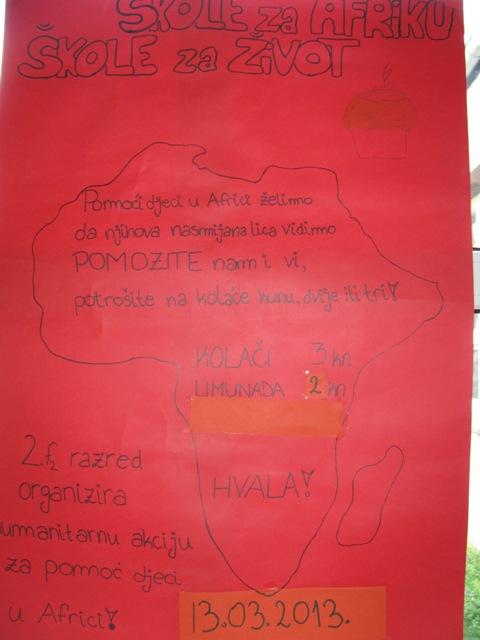 ŠKOLE za AFRIKU
ŠKOLE za ŽIVOT
Pomoći djeci u Africi želimo
da njihova nasmijana lica vidimo
POMOZITE nam i vi,
potrošite na kolače kunu, dvije ili tri!
KOLAČI 3 kn
LIMUNADA 2 kn
HVALA!
2.f2 razred
organizira
humanitarnu akciju
za pomoć djeci
u Africi!
13.03.2013.